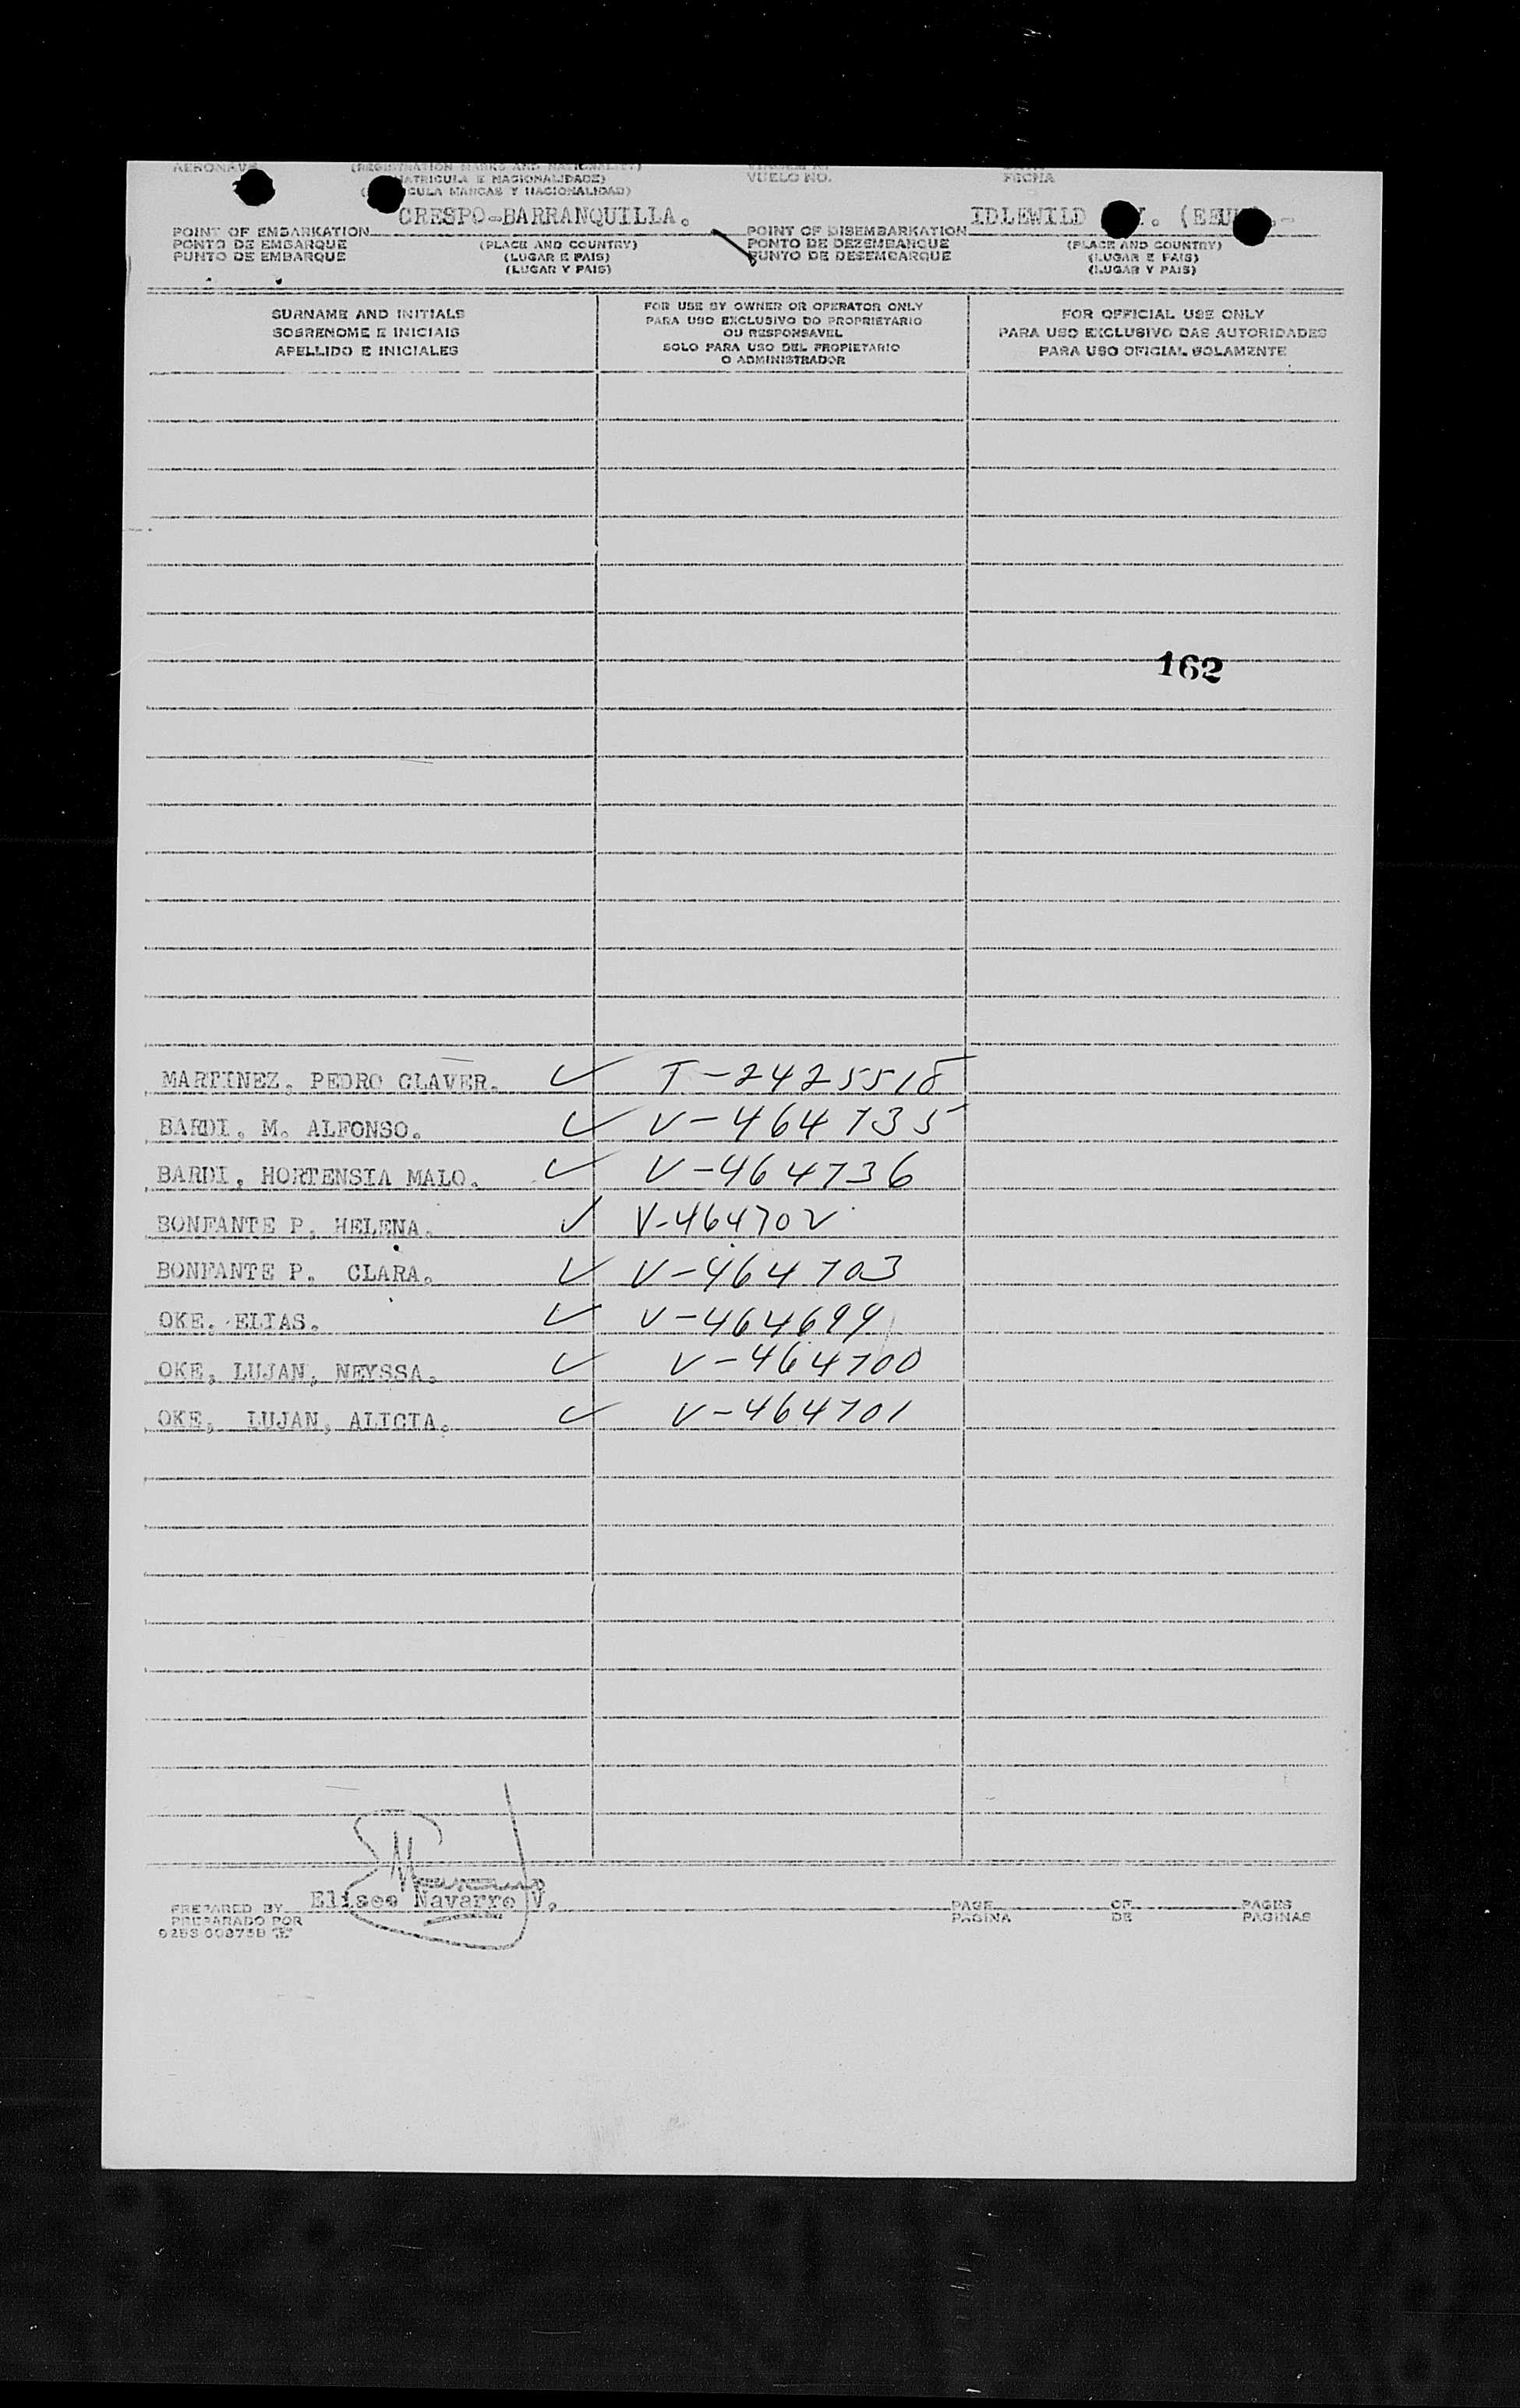 AERONAVE (REGISTRATION MARKS AND NACIONALITY)
MATRICULA E NACIONALIDADE) VUELO NO. FECHA
CULA MARCAS Y NACIONALIDAD)
CRESPO-BARRANQUILLA. IDLEWILD Y. (EEUU).-
POINT OF EMBARKATION POINT OF DISEMBARKATION
PONTO DE EMBARQUE (PLACE AND COUNTRY) PONTO DE DEZEMBARQUE (PLACE AND COUNTRY)
PUNTO DE EMBARQUE (LUGAR E PAIS) PUNTO DE DESEMBARQUE (LUGAR E PAIS)
(LUGAR Y PAIS) (LUGAR Y PAIS)
SURNAME AND INITIALS
SOBRENOME E INICIAIS
APELLIDO E INICIALES
FOR USE BY OWNER OR OPERATOR ONLY
PARA USO EXCLUSIVO DO PROPRIETARIO
OU RESPONSAVEL
SOLO PARA USO DEL PROPIETARIO
O ADMINISTRADOR
FOR OFFICIAL USE ONLY
PARA USO EXCLUSIVO DAS AUTORIDADES
PARA USO OFICIAL SOLAMENTE
162
MARTINEZ, PEDRO CLAVER. ✓ T-2425518
BARDI, M. ALFONSO. ✓ V-464735
BARDI, HORTENSIA MALO. ✓ V-464736
BONFANTE P, HELENA. ✓ V-464702
BONFANTE P. CLARA. ✓ V-464703
OKE, ELIAS. ✓ V-464699
OKE, LUJAN, NEYSSA. ✓ V-464700
OKE, LUJAN, ALICIA. ✓ V-464701
PREPARED BY Eliseo Navarro V. PAGE OF PAGES
PREPARADO POR PAGINA DE PAGINAS